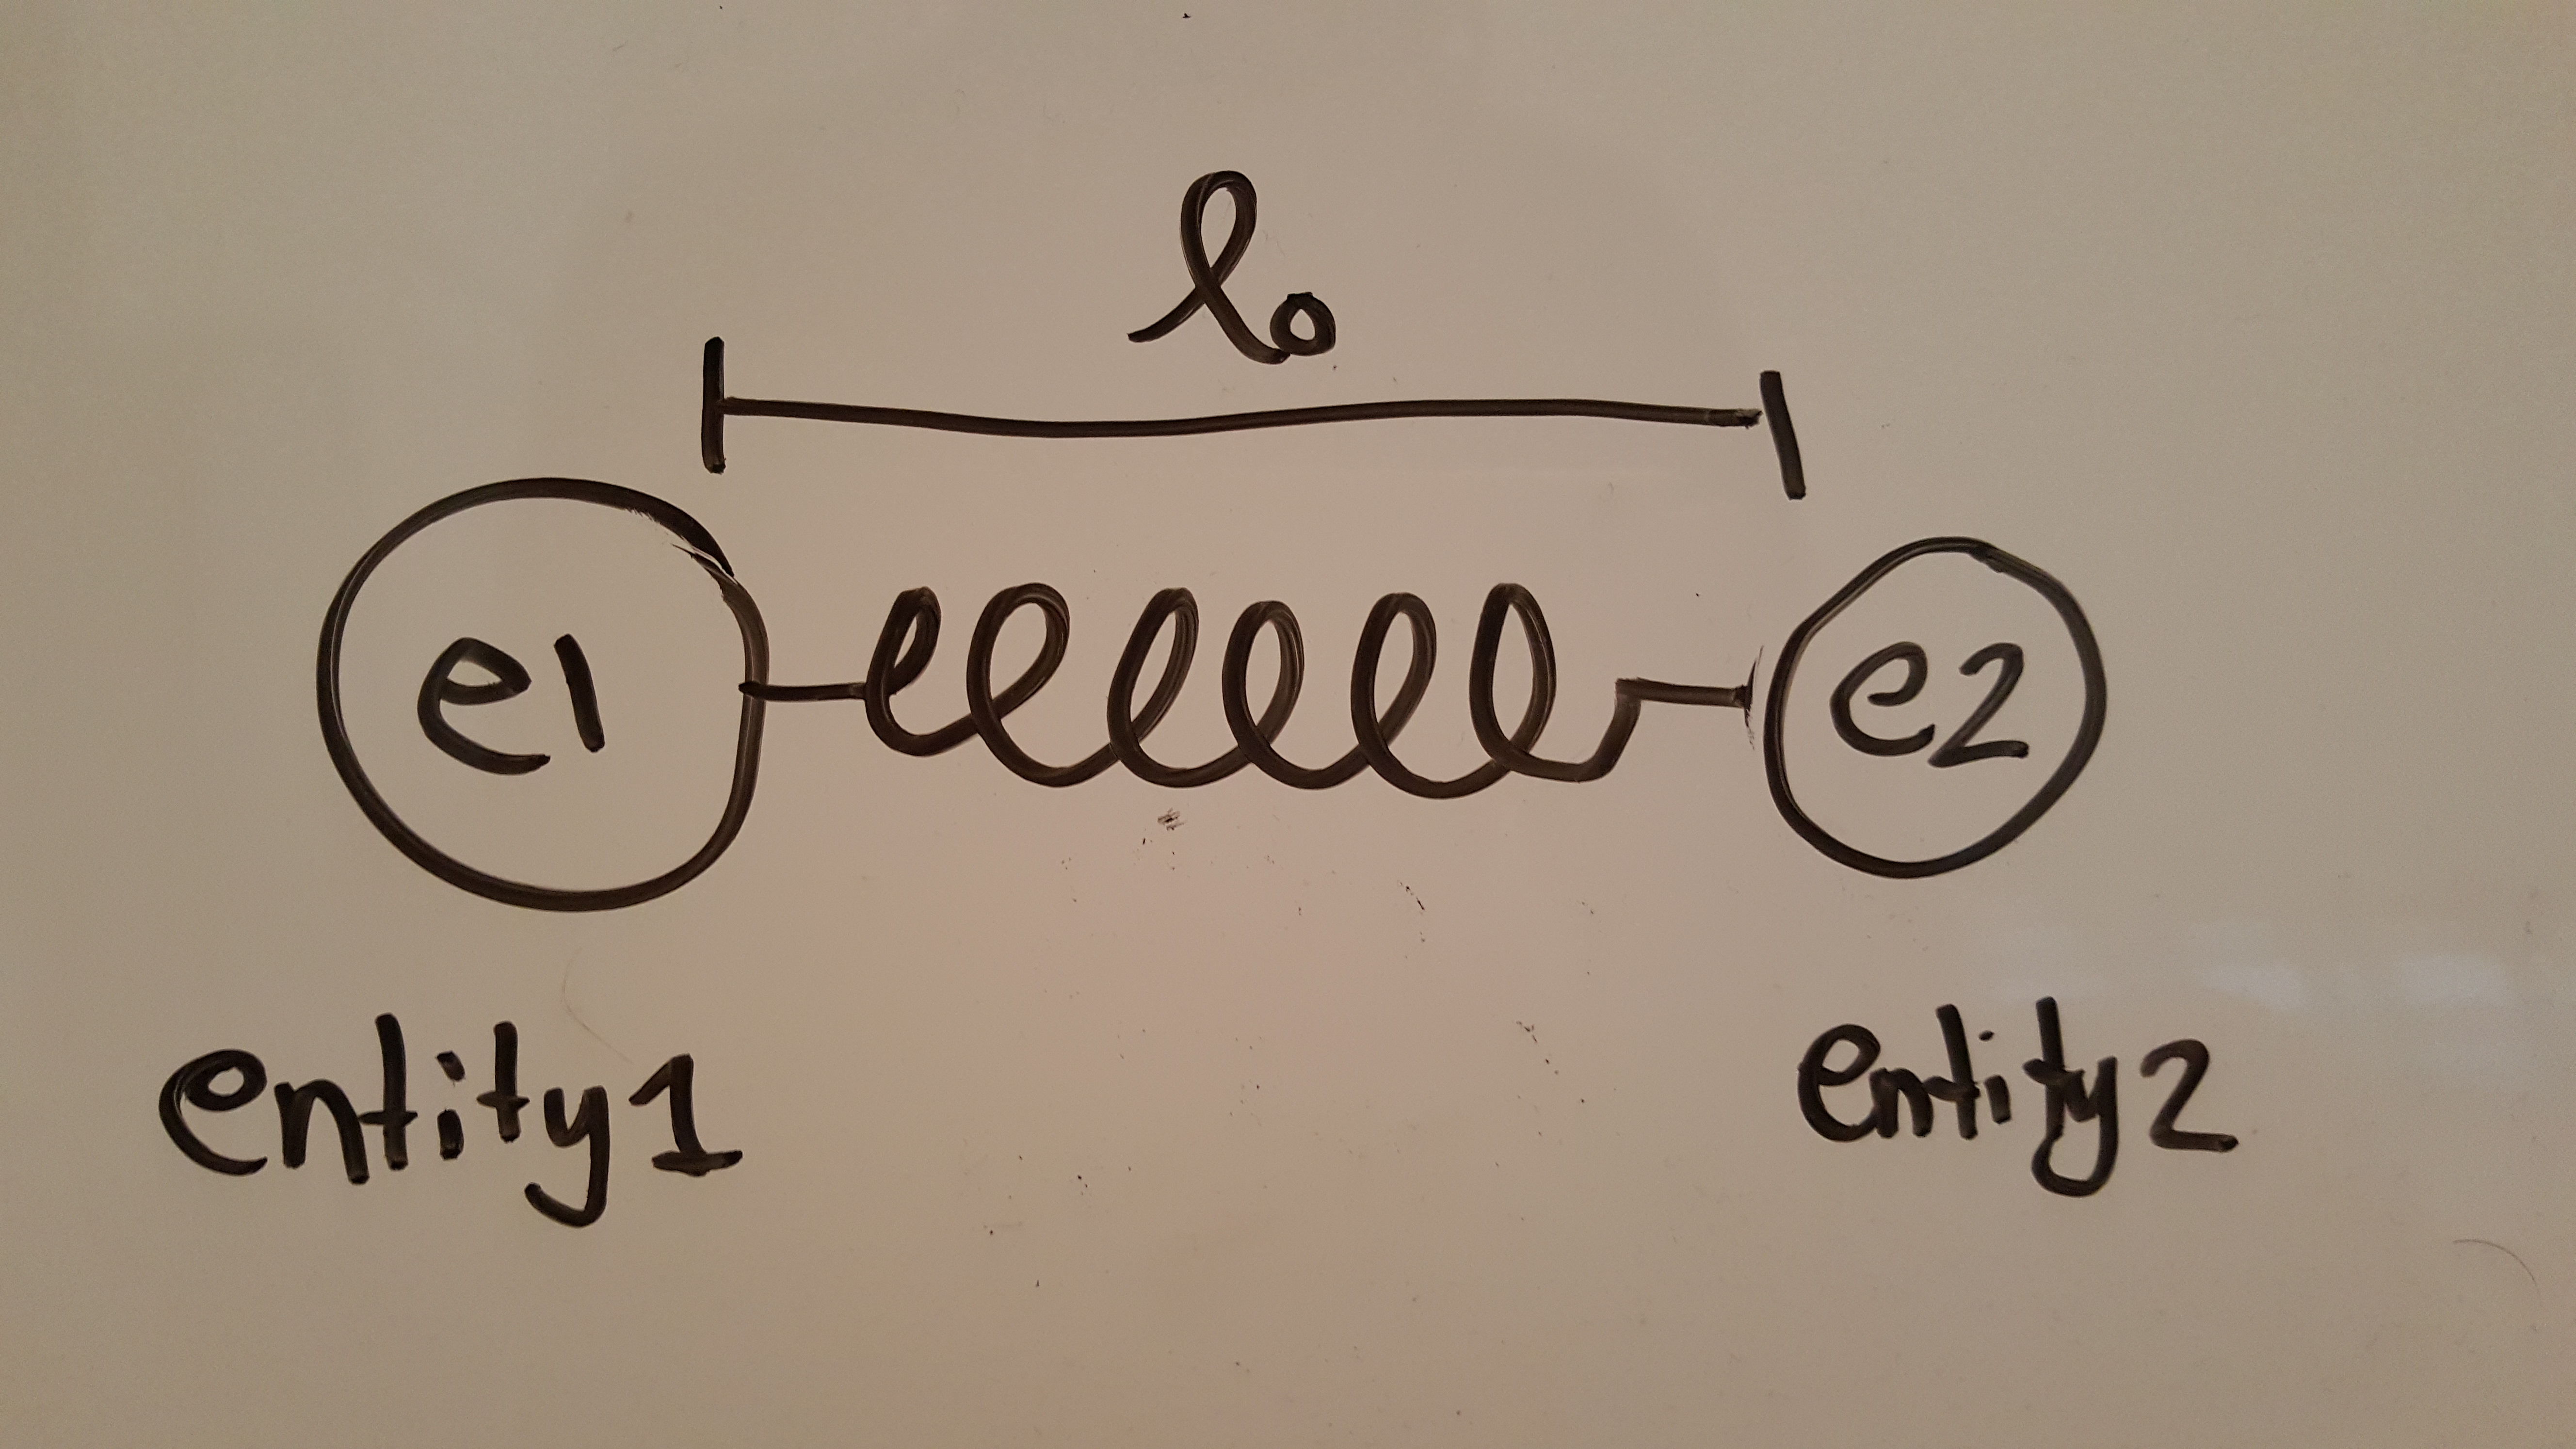 l₀
e1 e2
entity1 entity2